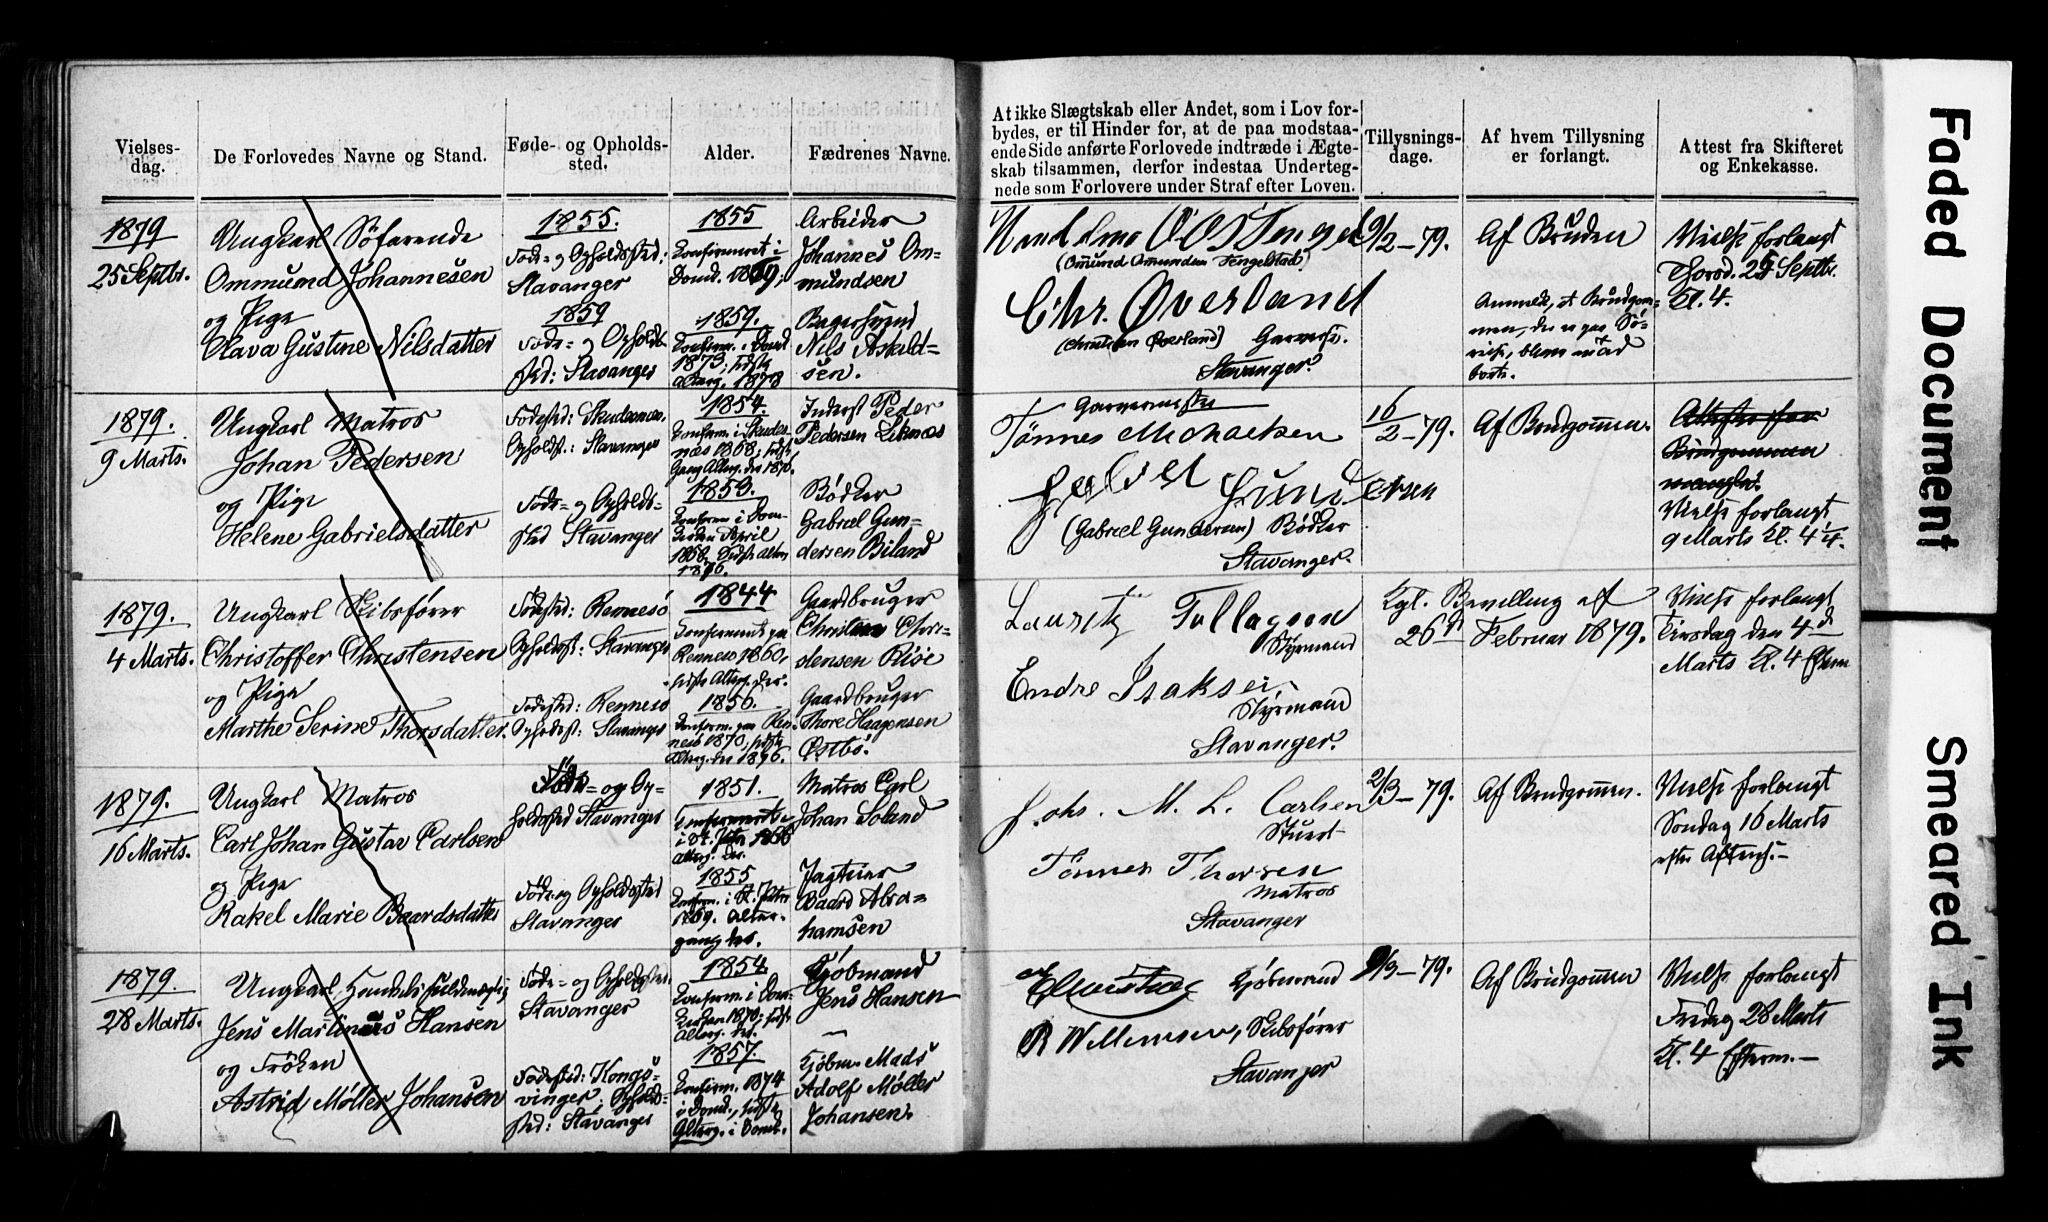 Vielses-
dag.
De Forlovedes Navne og Stand.
Føde- og Opholds-
sted.
Alder.
Fædrenes Navne.
At ikke Slægtskab eller Andet, som i Lov for-
bydes, er til Hinder for, at de paa modstaa-
ende Side anførte Forlovede indtræde i Ægte-
skab tilsammen, derfor indestaa Underteg-
nede som Forlovere under Straf efter Loven.
Tillysnings-
dage.
Af hvem Tillysning
er forlangt.
Attest fra Skifteret
og Enkekasse.
1879
25 Septbr.
Ungkarl Søfarende
Ommund Johannesen
og Pige
Olava Gustine Nilsdatter
1855.
Føde- og Opholdssted:
Stavanger
1859
Føde- og Opholds-
sted: Stavanger
1855
Konfirmeret i
Domk. 1869;
1859.
Konfirm. i Domk
1873; sidste
Alterg. 1878
Arbeider
Johannes Om-
mundsen
Bagersvend
Nils Askild-
sen.
(Ommund Ommundsen Tengesdal)
Chr. Øverland
(Christian Øverland) Garver.
Stavanger.
9/2-79.
Af Bruden
Anmeldt, at Brudgom-
men, der er paa Sø-
reise, blev
borte.
Vielse forlangt
Thorsd. 25 Septbr.
Kl. 4.
1879.
9 Marts.
Ungkarl Matros
Johan Pedersen
og Pige
Helene Gabrielsdatter
Fødested: Skudesnæs,
Opholdst.: Stavanger
Føde- og Opholds-
sted Stavanger
1854.
Konfirm. i Skudes-
næs 1868; sidste
Gang Alterg. der 1876.
1853.
Konfirm. i Dom-
kirken April
1868. Sidste Alterg.
1876.
Inderst Peder
Pedersen Liknæs
Bødker
Gabriel Gun-
dersen Biland
Garvermester
Tønnes Michaelsen
Gabriel Gundersen
(Gabriel Gundersen) Bødker
Stavanger.
16/2-79.
Af Brudgommen.
Attester for
Brudgommen
mangler.
Vielse forlangt
9 Marts Kl. 4 1/4.
1879.
4 Marts.
Ungkarl Skibsfører
Christoffer Christensen
og Pige
Marthe Serine Thorsdatter.
Fødested: Rennesø
Opholdst: Stavanger
Fødested: Rennesø
Opholdst: Stavanger
1844
Konfirmeret paa
Rennesø 1860,
sidste Alterg. der.
1856.
Konfirm. paa Ren-
nesø 1870, sidste
Alterg. der 1876.
Gaardbruger
Christen Chri-
stensen Riise
Gaardbruger
Thore Haagensen
Østbø.
Lauritz Tollagsen
Styrmand
Endre Isaksen
Styrmand
Stavanger.
Kgl. Bevilling af
26de Februar 1879.
Vielse forlangt
Tirsdag den 4de
Marts Kl. 4 Efterm
1879.
16 Marts.
Ungkarl Matros
Carl Johan Gustav Carlsen
og Pige
Rakel Marie Baardsdatter
Føde- og Op-
holdssted Stavanger
Føde- og Opholdssted
Stavanger
1851.
Konfirmeret
i St. Petri 1866
Alterg. der.
1855
Konfirm. i St. Petri
1869. Alter-
gang der.
Matros Carl
Johan Soland
Jagteier
Baard Abra-
hamsen
Johs. M. L. Carlsen
Stuert
Tønnes Thorsen
Matros
Stavanger
2/3-79.
Af Brudgommen.
Vielse forlangt
Søndag 16 Marts
efter Aftens.-
1879.
28 Marts.
Ungkarl Handelsfuldmægtig
Jens Martinius Hansen
og Frøken
Astrid Møller Johansen
Føde- og Opholdssted.
Stavanger
Fødested: Kongs-
vinger; Opholds-
sted: Stavanger
1854.
Konfirm. i Dom-
kirken 1870; sidst
Alterg. der.
1857.
Konfirm. 1874
i Domk., sidste
Alterg. i Domk.
Kjøbmand
Jens Hansen
Kjøbm. Mads
Adolf Møller
Johansen.
Kjøbmand
R Willemsen, Skibsfører
Stavanger
9/3-79.
Af Brudgommen
Vielse forlangt
Fredag 28 Marts
Kl. 4 Efterm.-
Faded Document
Smeared Ink